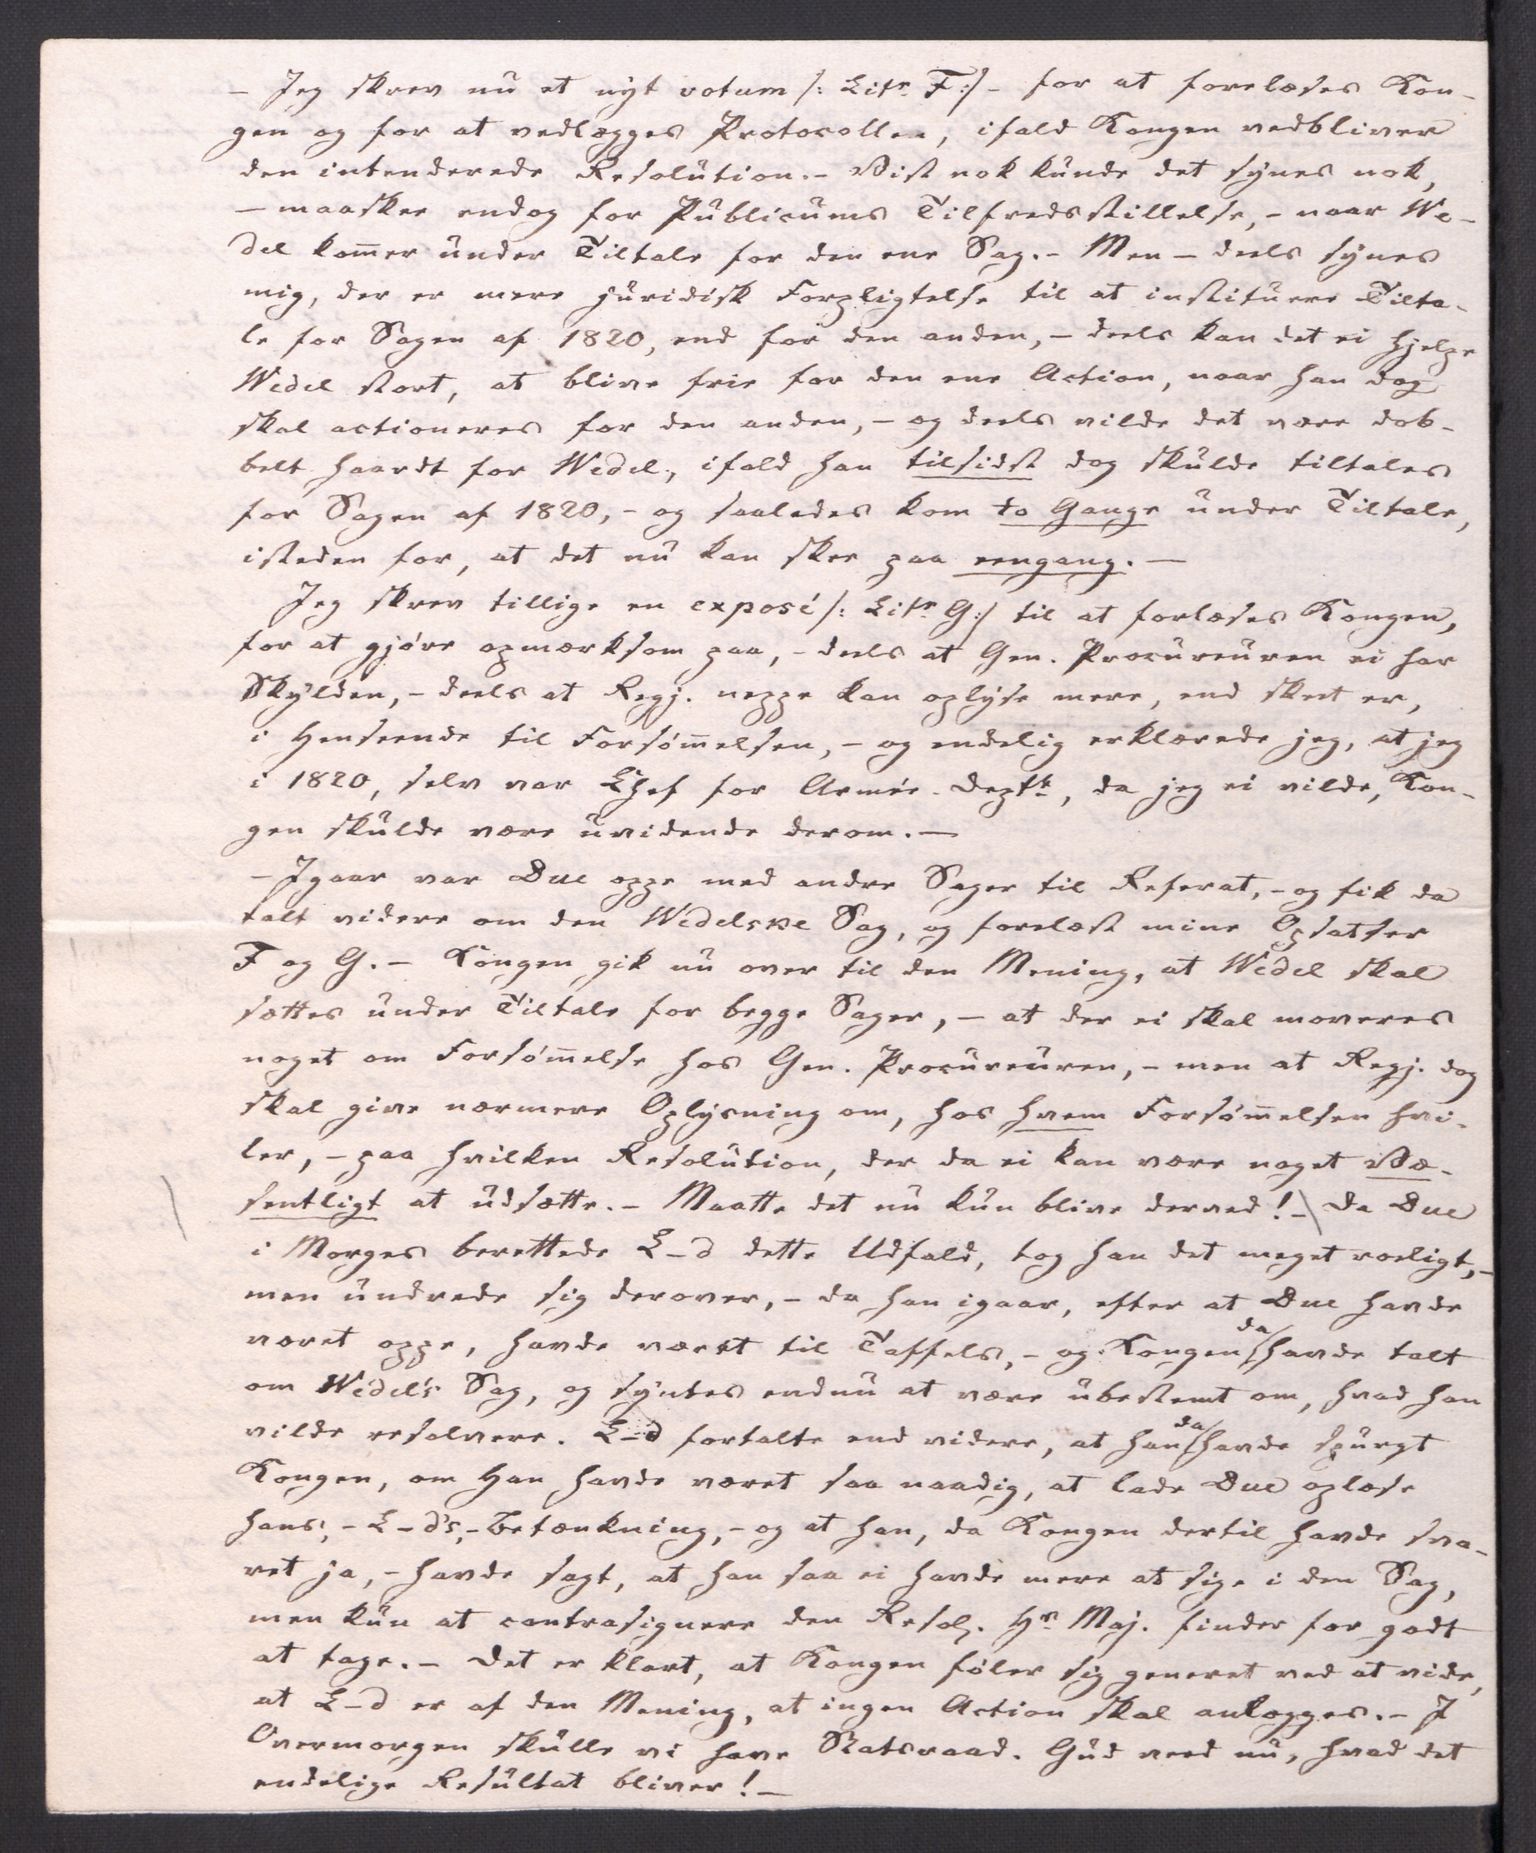 – Jeg skrev nu et nyt votum /: Litr. F :/ – for at forelæses Kon-
gen og for at vedlægges Protocollen, ifald Kongen vedbliver
den intenderede Resolution. – Vist nok kunde det synes nok,
– maaskee endog for Publicums Tilfredsstillelse, – naar We-
del kom̅er under Tiltale for den ene Sag. – Men – deels synes
mig, der er mere juridisk Forpligtelse til at instituere Tilta-
le for Sagen af 1820, end for den anden, – deels kan det ei hjelpe
Wedel stort, at blive frie for den ene Action, naar han dog
skal actioneres for den anden, – og deels vilde det være dob-
belt haardt for Wedel, ifald han tilsidst dog skulde tiltales
for Sagen af 1820, – og saaledes kom to Gange under Tiltale,
isteden for, at det nu kan skee paa eengang. –
Jeg skrev tillige en exposé /: Litr. G :/ til at forlæses Kongen,
for at gjøre opmærksom paa, – deels at Gen. Procureuren ei har
Skylden, – deels at Regj. neppe kan oplyse mere, end skeet er,
i Henseende til Forsøm̅elsen, – og endelig erklærede jeg, at jeg
i 1820, selv var Chef for Armée-Deptt., da jeg ei vilde, Kon-
gen skulde være uvidende derom. –
– Igaar var Due oppe med andre Sager til Referat, – og fik da
talt videre om den Wedelske Sag, og forelæst mine Opsatser
F og G. – Kongen gik nu over til den Mening, at Wedel skal
sættes under Tiltale for begge Sager, – at der ei skal moveres
noget om Forsøm̅else hos Gen. Procureuren, – men at Regj. dog
skal give nærmere Oplysning om, hos hvem Forsøm̅elsen hvi-
ler, – paa hvilken Resolution, der da ei kan være noget Væ-
sentligt at udsætte. – Maatte det nu kun blive derved! – Da Due
i Morges berettede L–d dette Udfald, tog han det meget roeligt, –
men undrede sig derover, – da han igaar, efter at Due havde
været oppe, havde været til Taffels, – og Kongen da havde talt
om Wedel's Sag, og syntes endnu at være ubestemt om, hvad han
vilde resolvere. L–d fortalte end videre, at han da havde spurgt
Kongen, om Han havde været saa naadig, at lade Due oplæse
hans, – L–d's, – Betænkning, – og at han, da Kongen dertil havde sva-
ret ja, – havde sagt, at han saa ei havde mere at sige i den Sag,
men kun at contrasignere den Resol. Hs Maj. finder for godt
at tage. – Det er klart, at Kongen føler sig generet ved at vide,
at L–d er af den Mening, at ingen Action skal anlægges. – I
Overmorgen skulle vi have Statsraad. Gud veed nu, hvad det
endelige Resultat bliver! –